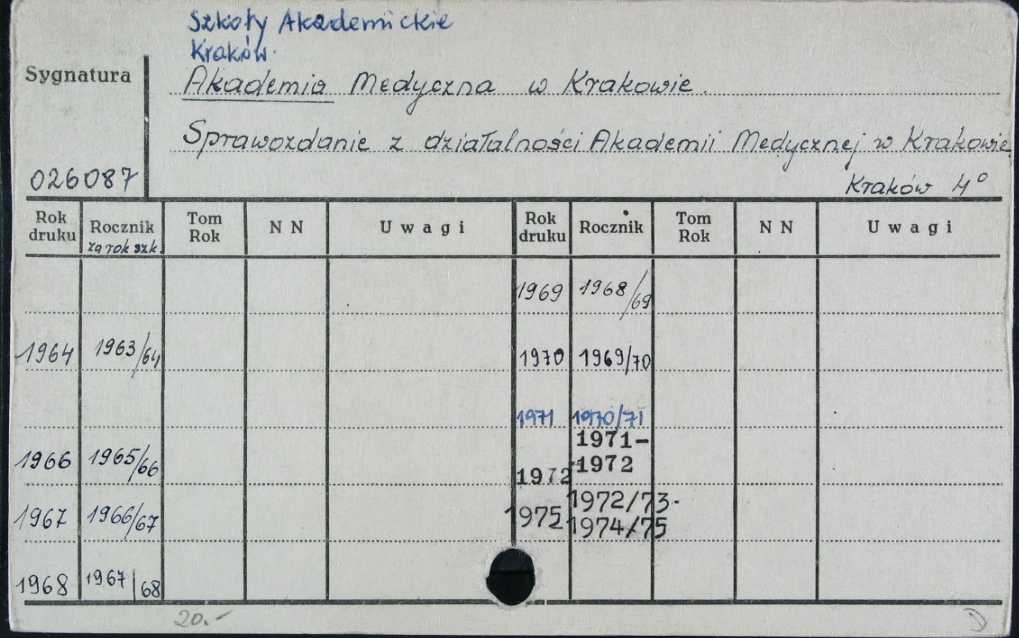 Szkoły Akademickie
Kraków.
Sygnatura
Akademia Medyczna w Krakowie.
Sprawozdanie z działalności Akademii Medycznej w Krakowie
026087
Kraków 4°
Rok druku Rocznik za rok szk. Tom Rok NN Uwagi Rok druku Rocznik Tom Rok NN Uwagi
1969 1968/69
1964 1963/64 1970 1969/70
1971 1970/71
1966 1965/66 1972 1971-1972
1967 1966/67 1975 1972/73-1974/75
1968 1967/68
20.-